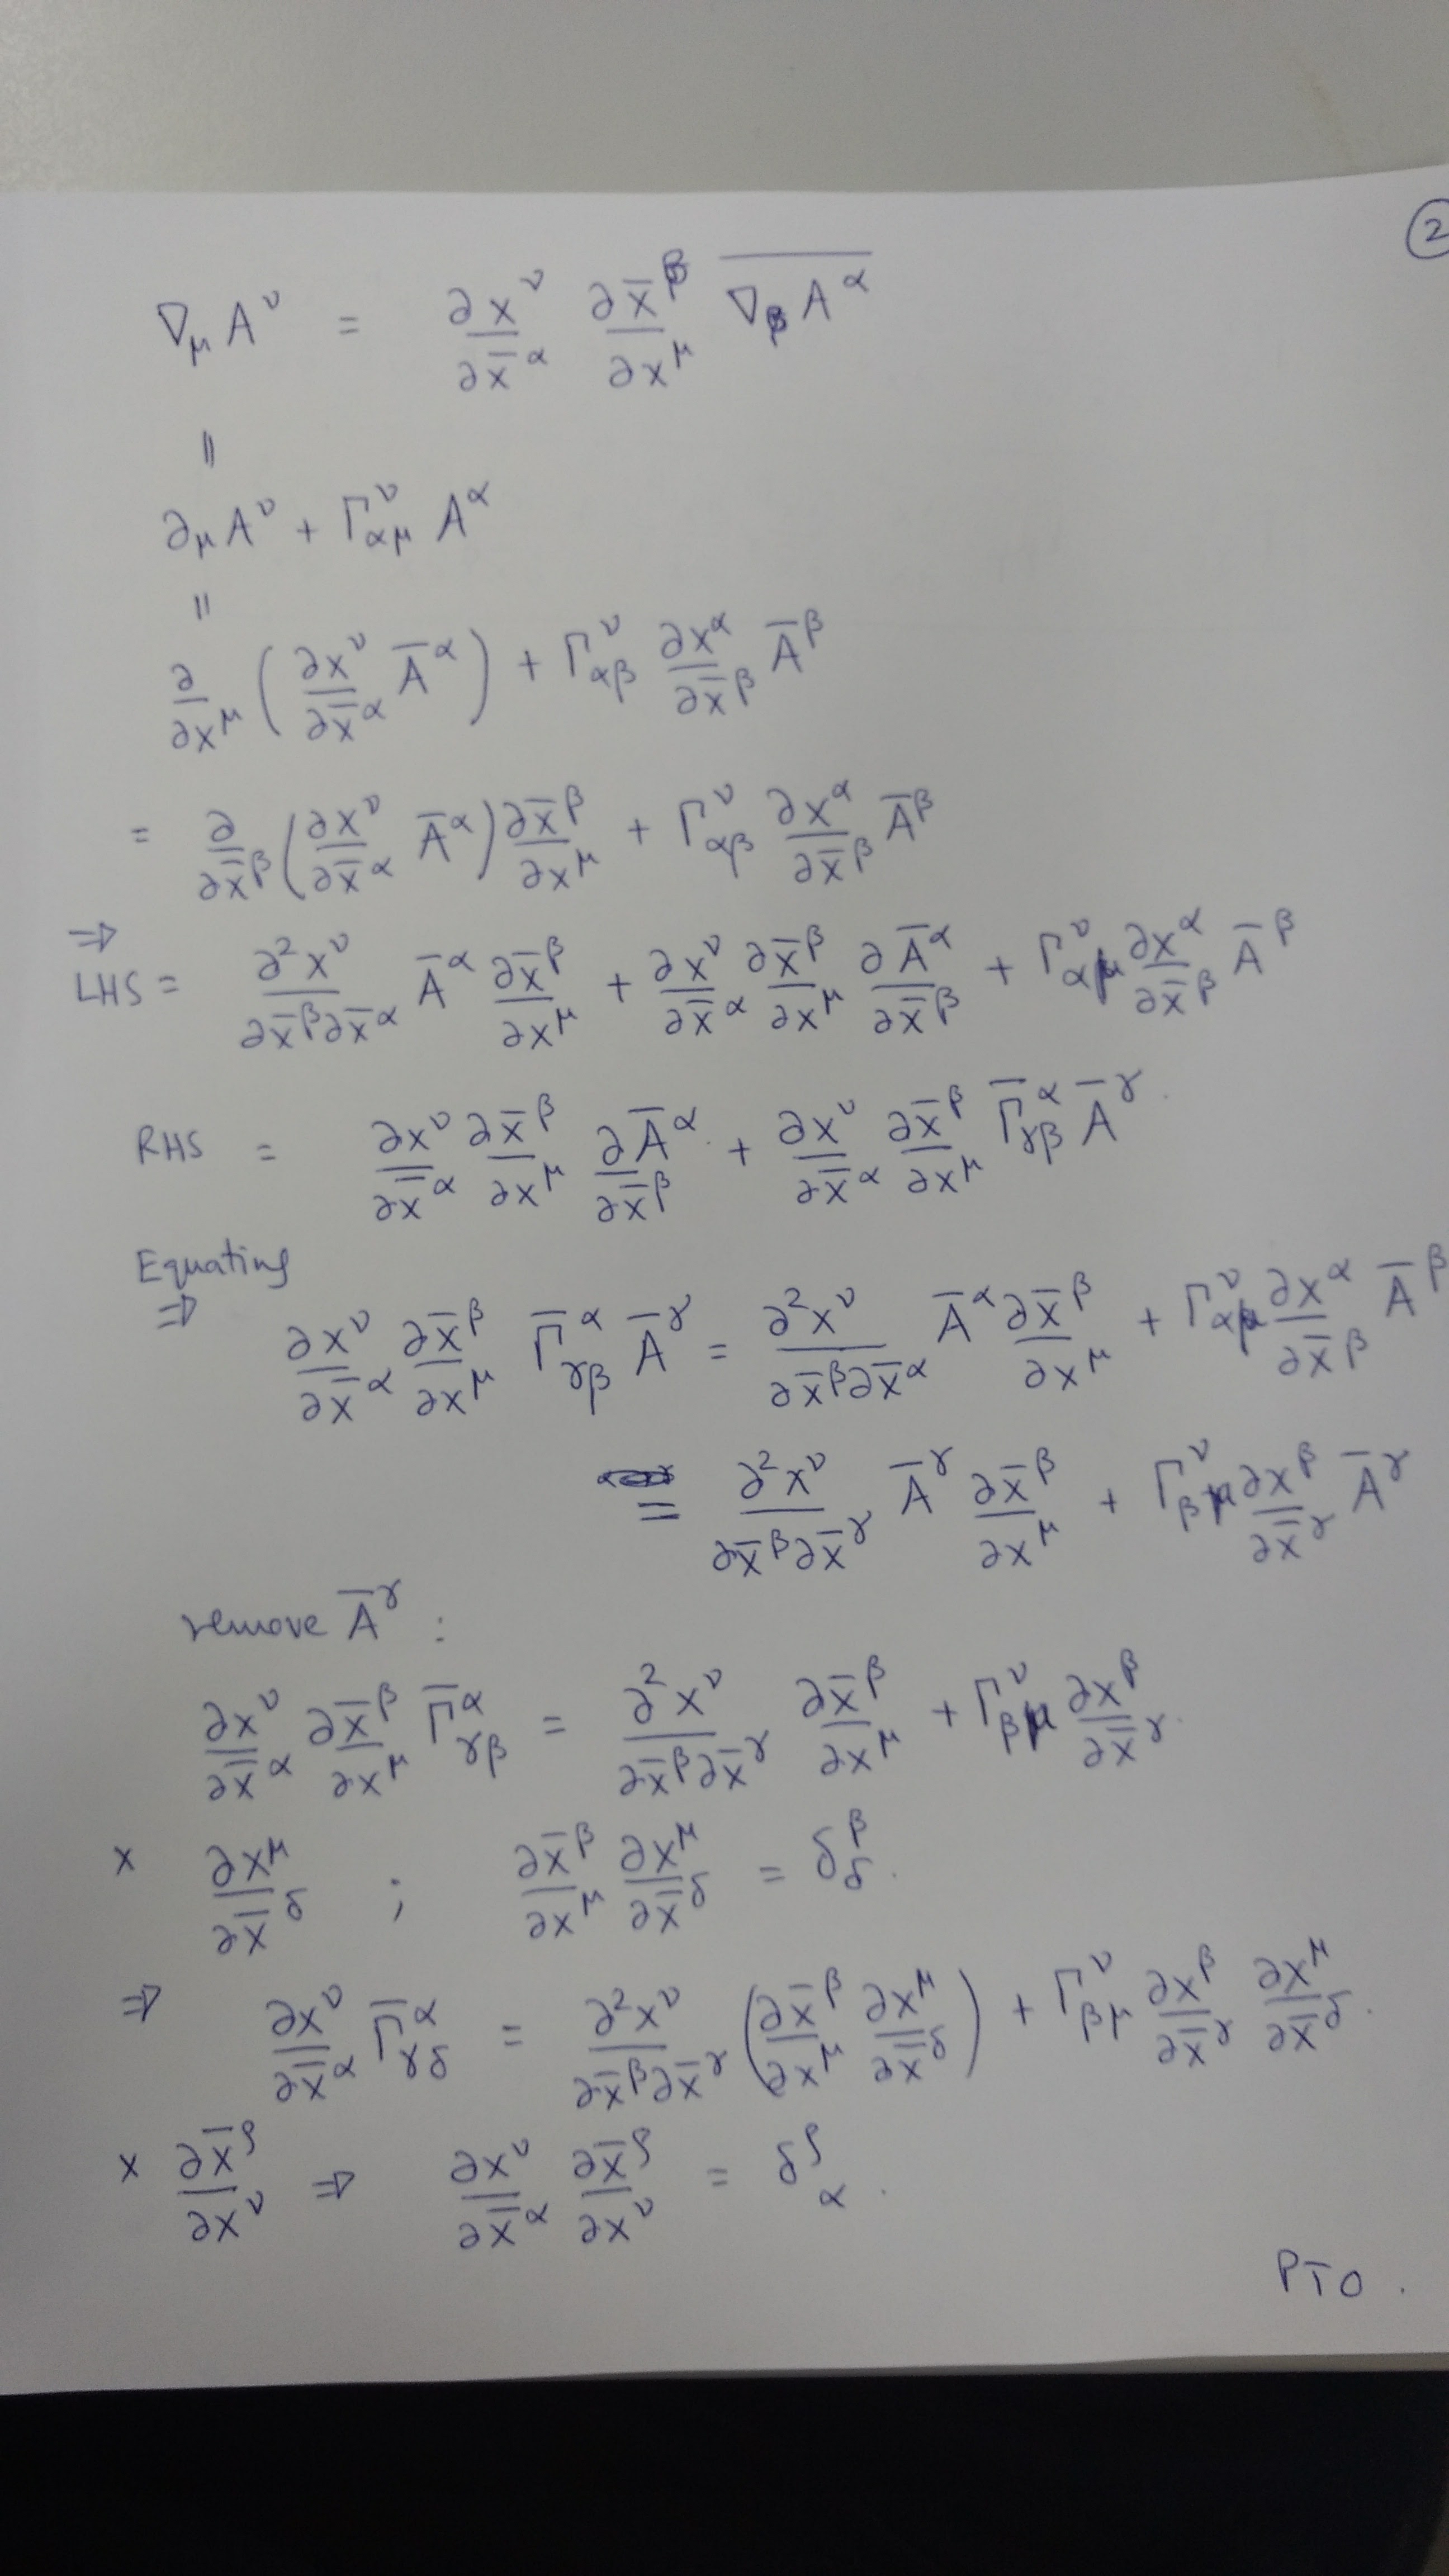 ②
∇_μ A^ν = ∂x^ν/∂x̄^α ∂x̄^β/∂x^μ \overline{∇_β A^α}
||
∂_μ A^ν + Γ^ν_{αμ} A^α
||
∂/∂x^μ (∂x^ν/∂x̄^α Ā^α) + Γ^ν_{αβ} ∂x^α/∂x̄^β Ā^β
= ∂/∂x̄^β (∂x^ν/∂x̄^α Ā^α) ∂x̄^β/∂x^μ + Γ^ν_{αβ} ∂x^α/∂x̄^β Ā^β
⇒
LHS = ∂²x^ν/∂x̄^β∂x̄^α Ā^α ∂x̄^β/∂x^μ + ∂x^ν/∂x̄^α ∂x̄^β/∂x^μ ∂Ā^α/∂x̄^β + Γ^ν_{αμ} ∂x^α/∂x̄^β Ā^β
RHS = ∂x^ν/∂x̄^α ∂x̄^β/∂x^μ ∂Ā^α/∂x̄^β + ∂x^ν/∂x̄^α ∂x̄^β/∂x^μ Γ̄^α_{γβ} Ā^γ.
Equating
⇒ ∂x^ν/∂x̄^α ∂x̄^β/∂x^μ Γ̄^α_{γβ} Ā^γ = ∂²x^ν/∂x̄^β∂x̄^α Ā^α ∂x̄^β/∂x^μ + Γ^ν_{αμ} ∂x^α/∂x̄^β Ā^β
= ∂²x^ν/∂x̄^β∂x̄^γ Ā^γ ∂x̄^β/∂x^μ + Γ^ν_{βμ} ∂x^β/∂x̄^γ Ā^γ
remove Ā^γ :
∂x^ν/∂x̄^α ∂x̄^β/∂x^μ Γ̄^α_{γβ} = ∂²x^ν/∂x̄^β∂x̄^γ ∂x̄^β/∂x^μ + Γ^ν_{βμ} ∂x^β/∂x̄^γ.
x ∂x^μ/∂x̄^δ ; ∂x̄^β/∂x^μ ∂x^μ/∂x̄^δ = δ^β_δ.
⇒ ∂x^ν/∂x̄^α Γ̄^α_{γδ} = ∂²x^ν/∂x̄^β∂x̄^γ (∂x̄^β/∂x^μ ∂x^μ/∂x̄^δ) + Γ^ν_{βμ} ∂x^β/∂x̄^γ ∂x^μ/∂x̄^δ.
x ∂x̄^ρ/∂x^ν ⇒ ∂x^ν/∂x̄^α ∂x̄^ρ/∂x^ν = δ^ρ_α.
PTO.